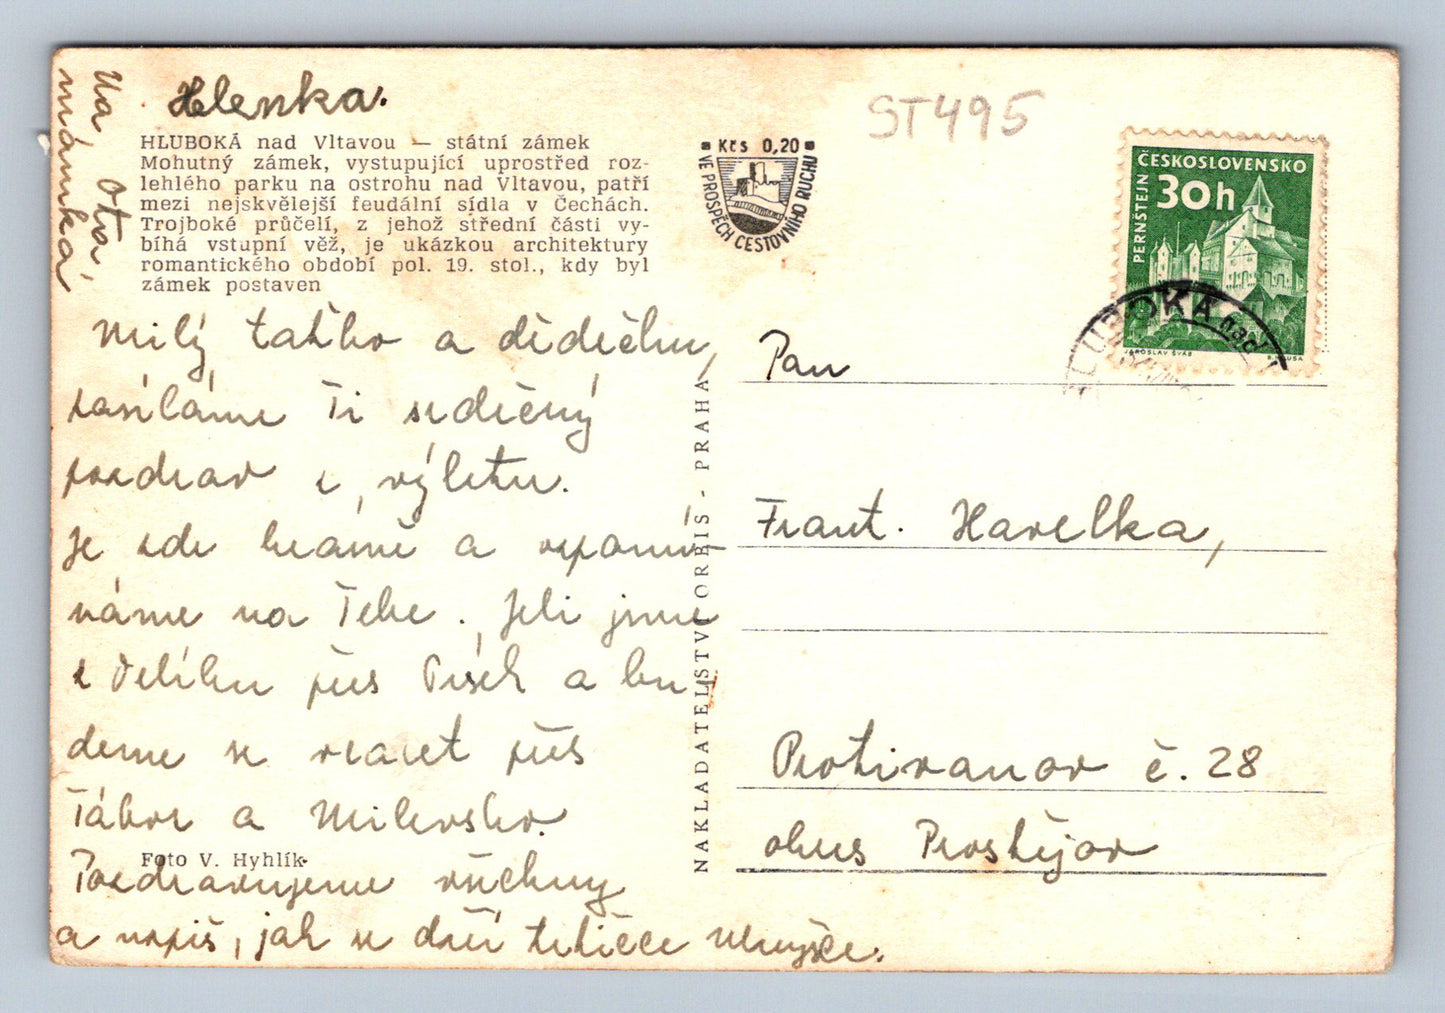 Helenka.
Ota,
maminka
HLUBOKÁ nad Vltavou — státní zámek
Mohutný zámek, vystupující uprostřed roz-
lehlého parku na ostrohu nad Vltavou, patří
mezi nejskvělejší feudální sídla v Čechách.
Trojboké průčelí, z jehož střední části vy-
bíhá vstupní věž, je ukázkou architektury
romantického období pol. 19. stol., kdy byl
zámek postaven
Milý taťko a dědečku,
zasíláme Ti srdečný
pozdrav z výletu.
Je zde krásně a vzpomí-
náme na Tebe. Jeli jsme
z přes Písek a bu-
deme se vracet přes
Tábor a Milevsko.
Foto V. Hyhlík
Pozdravujeme všechny
a napiš, jak se daří tetičce
NAKLADATELSTVÍ ORBIS - PRAHA
Kčs 0,20
VE PROSPĚCH CESTOVNÍHO RUCHU
ST495
ČESKOSLOVENSKO
30h
PERNŠTEJN
JAROSLAV ŠVÁB
HLUBOKÁ nad
Pan
Frant. Havelka,
Protivanov č. 28
okres Prostějov